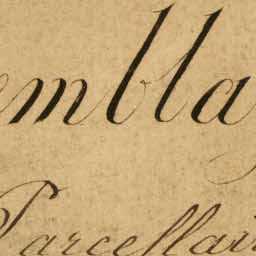 embla
Parcellai